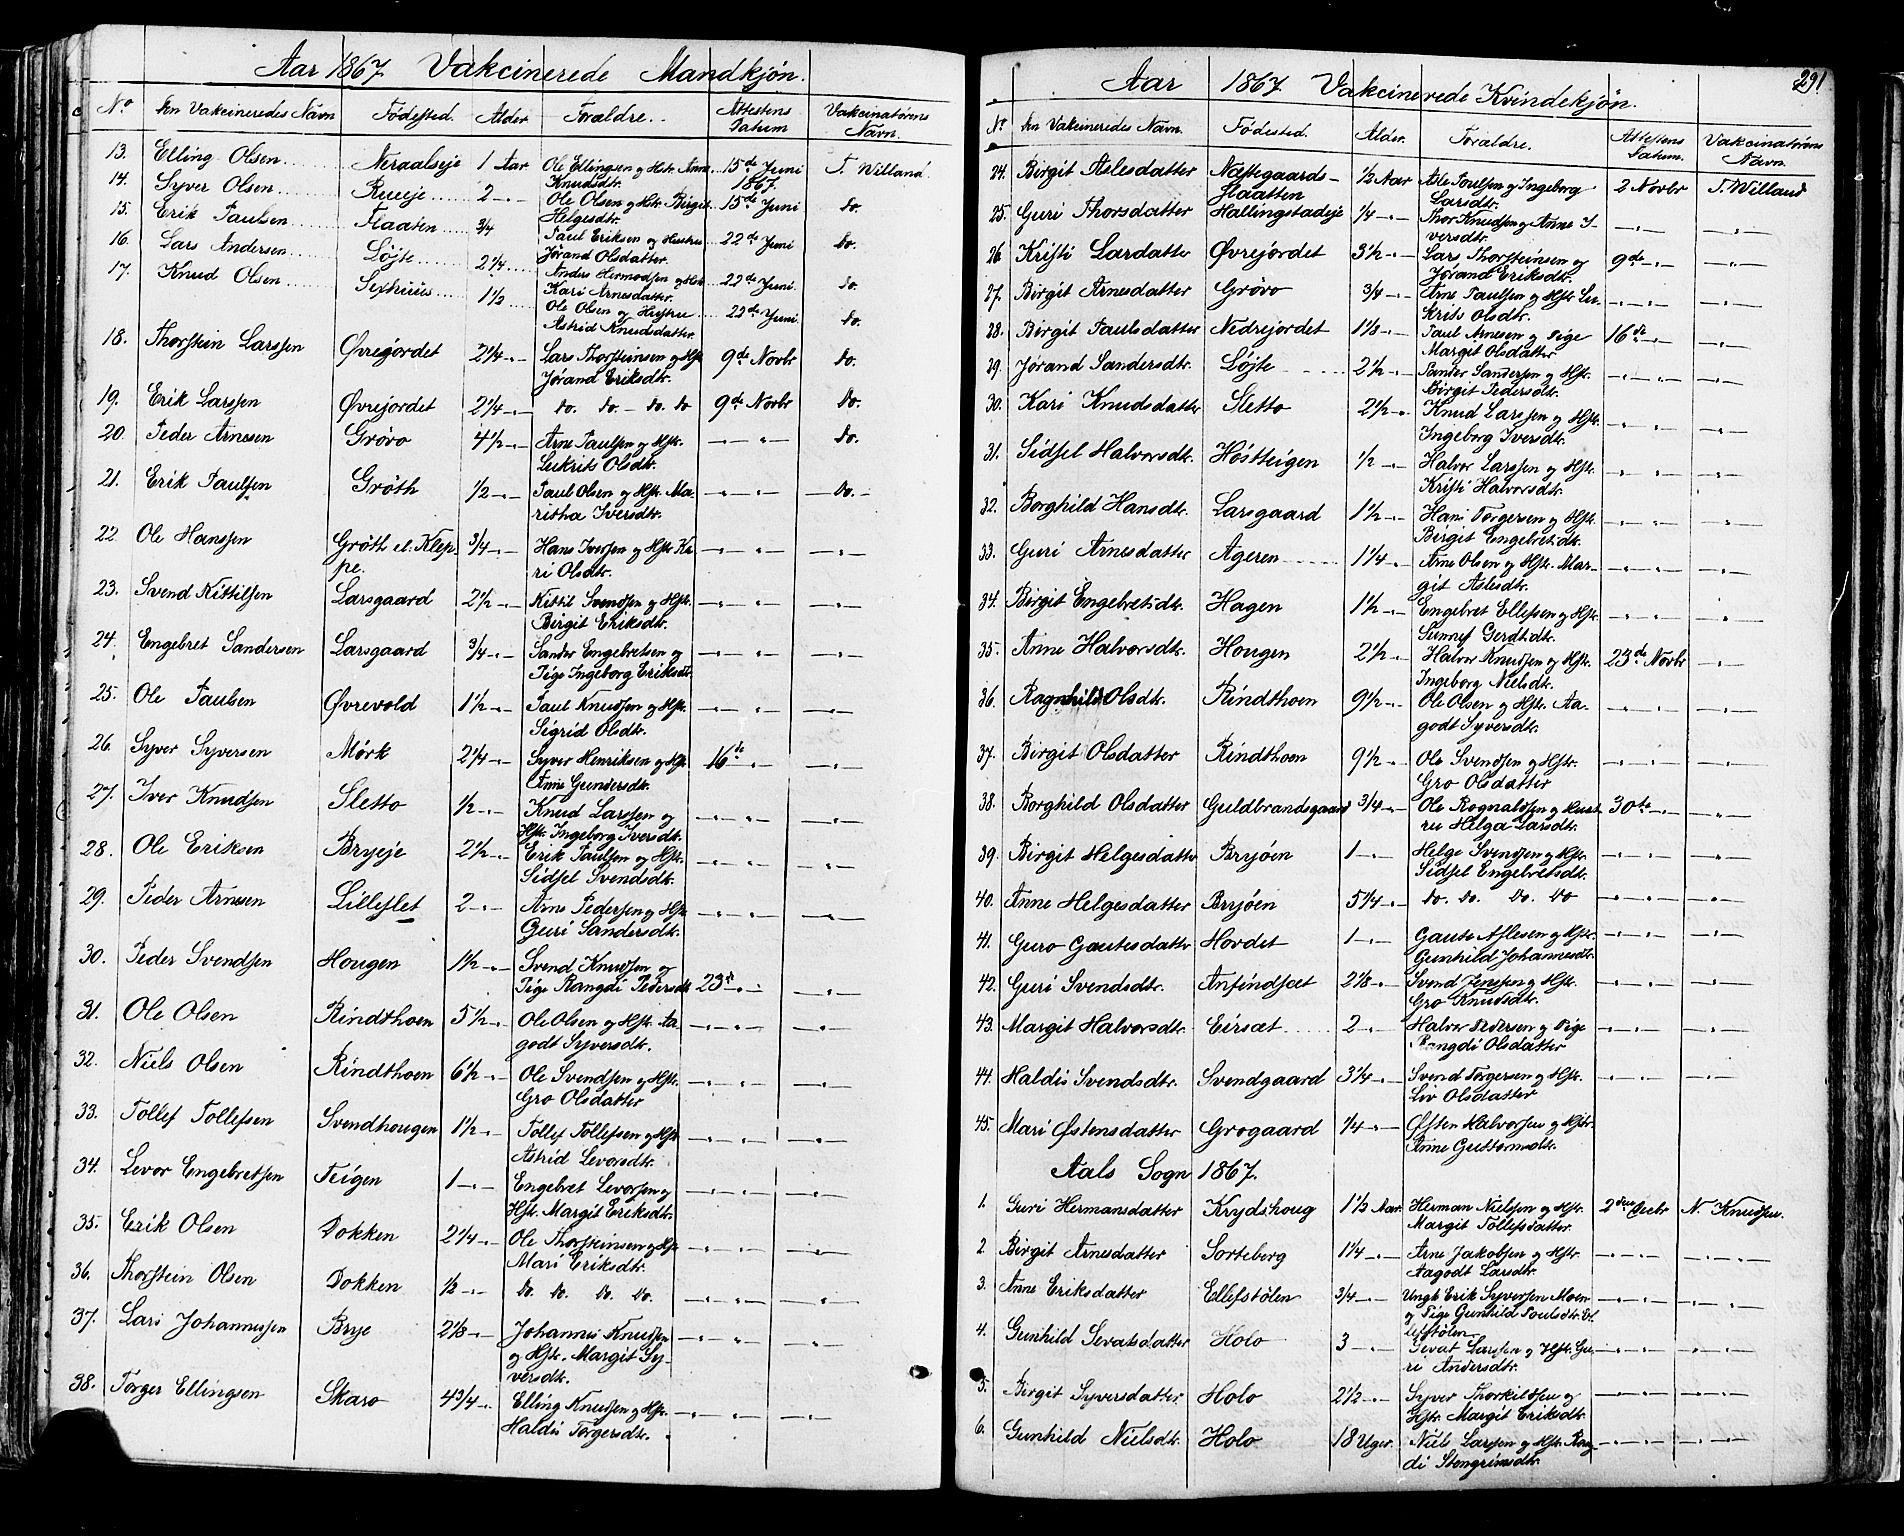 Aar 1867 Vakcinerede Mandkjøn.
No Den Vakcineredes Navn Fødested. Alder Forældre. Attestens Datum Vakcinatørens Navn.
13. Elling Olsen Neraalseje 1 Aar Ole Ellingsen og Hstr. Anne 15de Juni T. Willand.
Knudsdtr. 1867.
14. Syver Olsen Rueeje 2 -"- Ole Olsen og Hstr. Birgit 15de Juni do.
Helgesdtr.
15. Erik Paulsen Flaaten 3/4 Paul Eriksen og Hustru 22de Juni do.
Jørand Olsdatter.
16. Lars Andersen Løjte 2 1/4 Anders Hermodsen og Hst. 22de Juni do.
Kari Arnesdatter.
17. Knud Olsen Sexhuus 1 1/2 Ole Olsen og Hustru 22de Juni do.
Astrid Knudsdatter.
18. Thorstein Larssen Øvrejordet 2 1/4 -"- Lars Thorsteinsen og Hstr 9de Novbr do.
Jørand Eriksdtr.
19. Erik Larssen Øvrejordet 2 1/4 -"- do. do. - do. do 9de Novbr do.
20. Peder Arnesen Grøvo 4 1/2 -"- Arne Paulsen og Hstr. -"- -"- do.
Lukrits Olsdtr.
21. Erik Paulsen Grøth 1/2 -"- Paul Olsen og Hstr. Ma- -"- -"- -do.-
ritha Iversdtr.
22. Ole Hanssen Grøth el. Klep 3/4 -"- Hans Iversen og Hstr Ka -"- -"- -"-
pe. ri Olsdtr.
23. Svend Kittilsen Larsgaard 2 1/2 -"- Kittil Svendsen og Hstr. -"- -"- -"-
Birgit Eriksdtr.
24. Engebret Sandersen Larsgaard 3/4 -"- Sander Engebretsen og -"- -"- -"-
Pige Ingeborg Eriksdtr
25. Ole Paulsen Øvrevold 1 1/2 -"- Paul Knudsen og Hstr. -"- -"- -"-
Sigrid Olsdtr.
26. Syver Syversen Mørk 2 1/4 -"- Syver Henriksen og Hstr 16de -"- -"-
Anne Gundersdtr.
27. Iver Knudsen Sletto 1/2 -"- Knud Larssen og -"- -"- -"-
Hstr. Ingeborg Iversdtr.
28. Ole Eriksen Bryeje 2 1/2 -"- Erik Paulsen og Hstr. -"- -"- -"-
Sidsel Svendsdtr.
29. Peder Arnesen Lilleslet 2 -"- Arne Pedersen og Hstr -"- -"- -"-
Guri Sandersdtr.
30. Peder Svendsen Hougen 1 1/2 -"- Svend Knudsen og
Pige Rangdi Pedersdtr 23de -"- -"-
31. Ole Olsen Rindthoen 5 1/2 -"- Ole Olsen og Hstr. Aa -"- -"- -"-
godt Syversdtr.
32. Niels Olsen Rindthoen 6 1/2 -"- Ole Svendsen og Hstr. -"- -"- -"-
Gro Olsdatter
33. Tollef Tollefsen Svendhougen 1 1/2 -"- Tollef Tollefsen og Hstr -"- -"- -"-
Astrid Levorsdtr.
34. Levor Engebretsen Teigen 1 -"- Engebret Levorsen og -"- -"- -"-
Hstr. Margit Eriksdtr.
35. Erik Olsen Dokken 2 1/4 -"- Ole Thorsteinsen og Hstr -"- -"- -"-
Mari Eriksdtr.
36. Thorstein Olsen Dokken 1/2 -"- do. do. do. do. -"- -"- -"-
37. Lars Johannessen Brye 2 1/8 -"- Johannes Knudsen -"- -"- -"-
og Hstr. Margit Sy-
versdtr.
38. Torger Ellingsen Skaro 4 3/4 -"- Elling Knudsen og Hstr. -"- -"- -"-
Haldis Torgersdtr.
291
Aar 1867 Vakcinerede Kvindekjøn.
No Den Vakcineredes Navn. Fødested. Alder. Forældre. Attestens Datum. Vakcinatørens Navn.
24. Birgit Aslesdatter Næstegaards- 1/2 Aar Asle Paulsen og Ingeborg 2 Novbr T. Willand
flaatten Larsdtr.
25. Guri Thorsdatter Hallingstadeje 1/4 -"- Thor Knudsen og Anne I- -"- -"-
versdtr.
26. Kristi Larsdatter Øvrejordet 3 1/2 -"- Lars Thorsteinsen og 9de -"- -"-
Jørand Eriksdtr.
27. Birgit Arnesdatter Grøvo 3/4 -"- Arne Paulsen og Hstr Lu- -"- -"- -"-
krits Olsdtr.
28. Birgit Paulsdatter Nedrejordet 1 1/8 -"- Paul Arnesen og Pige 16de -"- -"-
Margit Olsdatter.
29. Jørand Sandersdtr. Løjte 2 1/2 -"- Sander Sandersen og Hstr. -"- -"- -"-
Birgit Pedersdtr.
30. Kari Knudsdatter Sletto 2 1/2 -"- Knud Larssen og Hstr. -"- -"- -"-
Ingeborg Iversdtr.
31. Sidsel Halvorsdtr. Høstteigen 1/2 -"- Halvor Larssen og Hstr. -"- -"- -"-
Kristi Halvorsdtr.
32. Borghild Hansdtr. Larsgaard 1 1/2 -"- Hans Torgersen og Hstr. -"- -"- -"-
Birgit Engebretsdtr.
33. Guri Arnesdatter Ageren 1 1/4 -"- Arne Olsen og Hstr. Mar- -"- -"- -"-
git Aslesdtr.
34. Birgit Engebretsdtr. Hagen 1 1/2 -"- Engebret Ellefsen og Hstr. -"- -"- -"-
Sunnef Gerdtsdtr.
35. Anne Halvorsdtr. Hougen 2 1/2 -"- Halvor Knudsen og Hstr. 23de Novbr -"-
Ingeborg Nielsdtr.
36. Ragnhild Olsdtr. Rindthoen 9 1/2 -"- Ole Olsen og Hstr. Aa- -"- -"- -"-
godt Syversdtr.
37. Birgit Olsdatter Rindthoen 9 1/2 -"- Ole Svendsen og Hstr. -"- -"- -"-
Gro Olsdatter
38. Borghild Olsdatter Guldbrandsgaard 3/4 -"- Ole Rognaldsen og Hust 30te -"- -"-
ru Helga Larsdtr.
39. Birgit Helgesdatter Bryøen 1 -"- Helge Svendsen og Hstr -"- -"- -"-
Sidsel Engebretsdtr.
40. Anne Helgesdatter Bryøen 5 1/4 -"- do. do. do. do -"- -"- -"-
41. Guro Gautesdatter Hovdet 1 -"- Gaute Aslesen og Hstr. -"- -"- -"-
Gunhild Johannesdtr.
42. Guri Svendsdtr. Anfindset 2 1/8 -"- Svend Jenssen og Hstr. -"- -"- -"-
Gro Knudsdtr.
43. Margit Halvorsdtr. Eirsæt 2 -"- Halvor Pedersen og Pige -"- -"- -"-
Rangdi Olsdatter
44. Haldis Svendsdtr. Svendgaard 3 1/4 -"- Svend Torgersen og Hstr. -"- -"- -"-
Liv Olsdatter
45. Mari Østensdatter Grogaard 1/4 -"- Østen Halvorsen og Hstr. -"- -"- -"-
Anne Guttormsdtr.
Aals Sogn 1867.
1. Guri Hermansdatter Krydshoug 1 1/2 Aar. Herman Nielsen og Hstr. 2den Decbr N. Knudsen.
Margit Tollefsdatter.
2 Birgit Arnesdatter Sorteberg 1 1/4 -"- Arne Jakobsen og Hstr. -"- -"- -"-
Aagodt Larsdtr.
3. Anne Eriksdatter Ellefstølen 3/4 -"- Ungk Erik Syversen Moen -"- -"- -"-
og Pige Gunhild Paulsdtr. El-
lefstølen
4. Gunhild Sevatsdatter Holo 3 -"- Sevat Larssen og Hstr. Gu- -"- -"- -"-
ri Andersdtr.
5. Birgit Syversdatter Holo 2 1/2 -"- Syver Thorkildsen og -"- -"- -"-
Hstr. Margit Eriksdtr.
6. Gunhild Nielsdtr. Holo 18 Uger. Niels Larssen og Hstr. Rang -"- -"- -"-
di Stengrimsdtr.